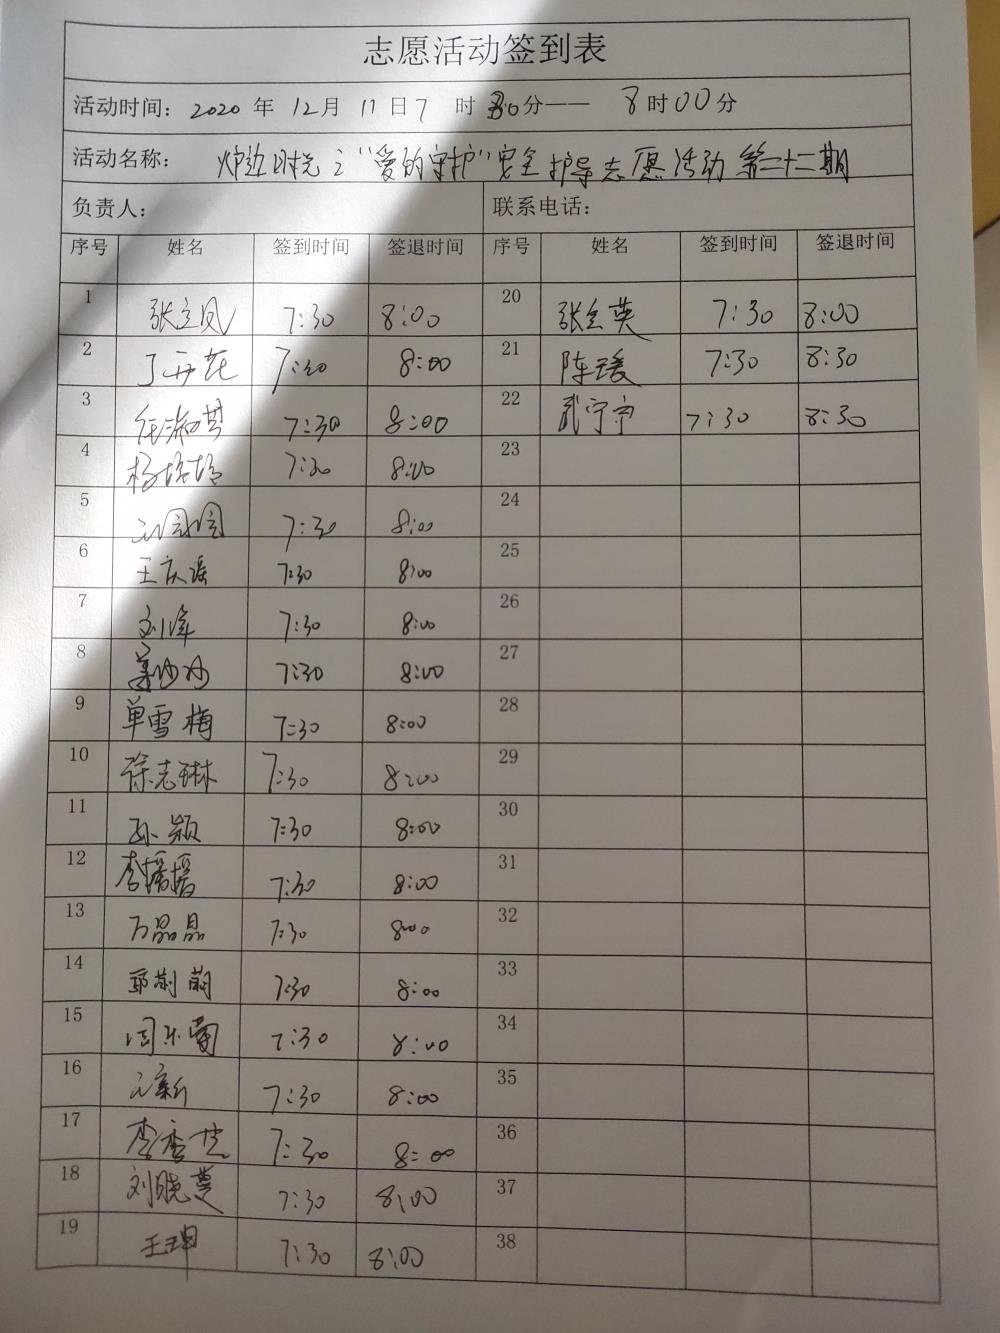 志愿活动签到表
活动时间: 2020 年 12月 11日7 时 30分—— 8时00分
活动名称: 炉边时光之"爱的守护"安全护导志愿活动第二十二期
负责人: 联系电话:
序号 姓名 签到时间 签退时间 序号 姓名 签到时间 签退时间
1 张立凤 7:30 8:00 20 张全英 7:30 8:00
2 7:30 8:00 21 陈瑗 7:30 8:30
3 任淑苹 7:30 8:00 22 武宁宁 7:30 8:30
4 杨培培 7:30 8:00 23
5 7:30 8:00 24
6 王庆瑶 7:30 8:00 25
7 刘峰 7:30 8:00 26
8 姜沙沙 7:30 8:00 27
9 单雪梅 7:30 8:00 28
10 徐志琳 7:30 8:00 29
11 孙颖 7:30 8:00 30
12 李播播 7:30 8:00 31
13 万晶晶 7:30 8:00 32
14 7:30 8:00 33
15 周乐菊 7:30 8:00 34
16 7:30 8:00 35
17 7:30 8:00 36
18 刘晓蔓 7:30 8:00 37
19 王珥 7:30 8:00 38